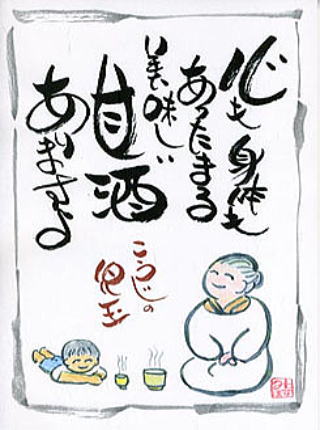 心も身体も
あったまる
美味しい
甘酒
あります
こうじの
児玉